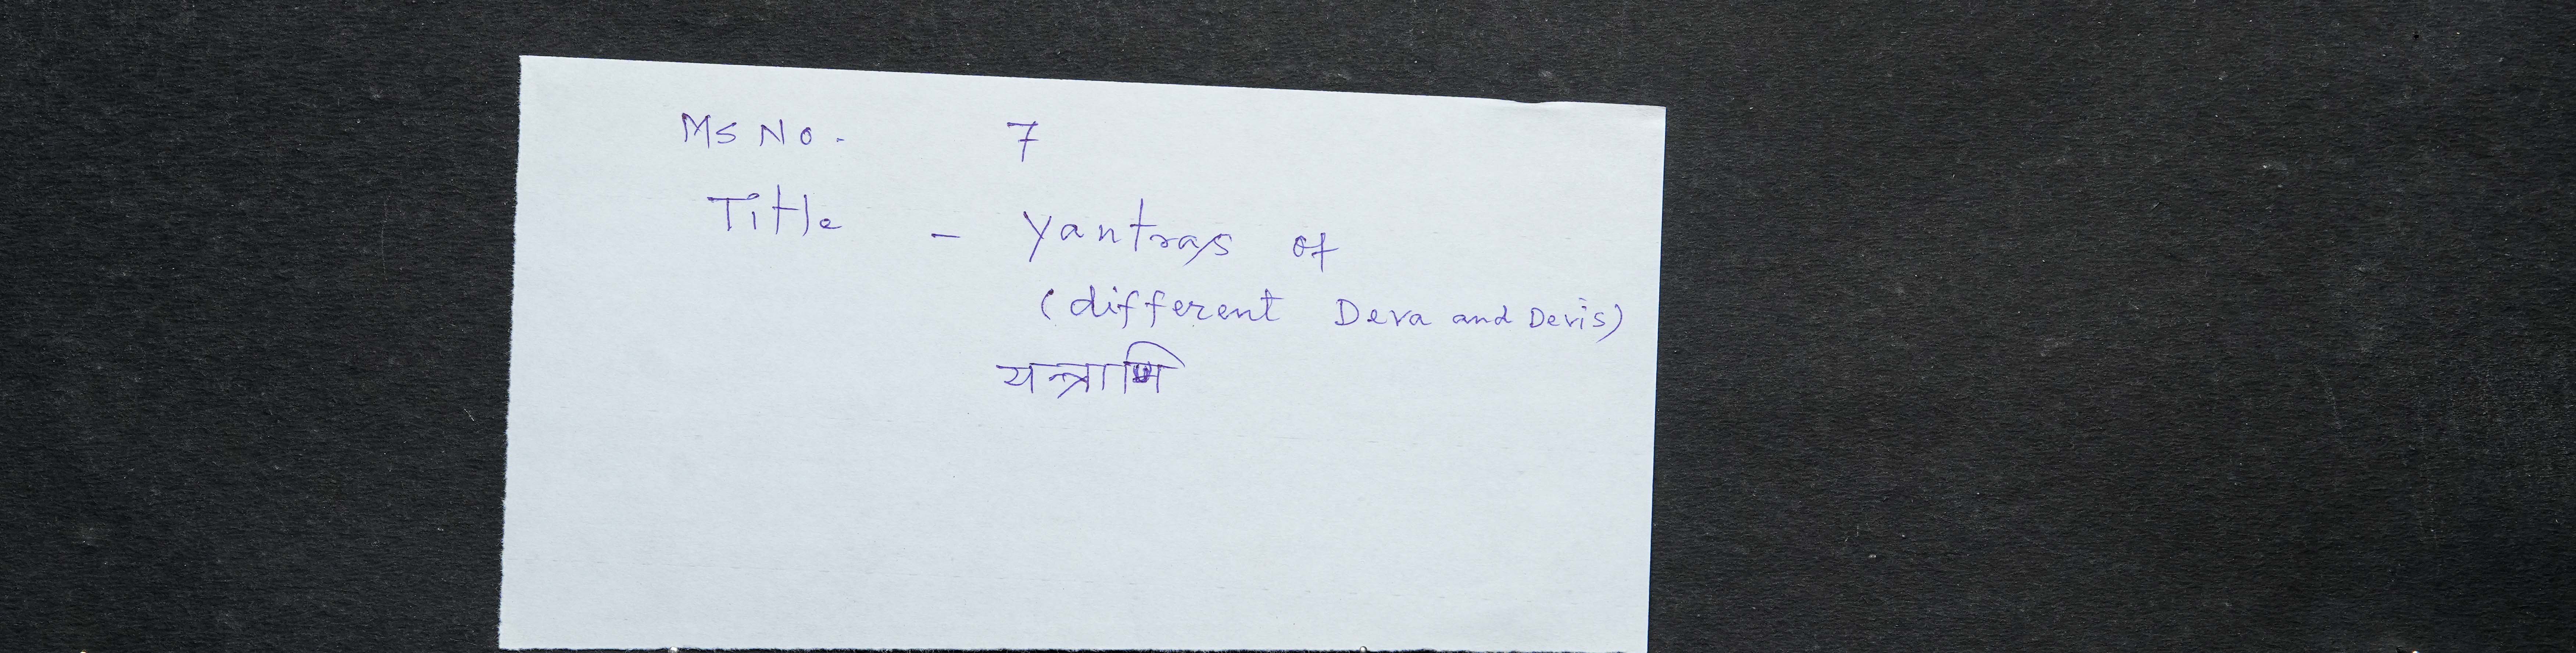 Ms No. 7
Title - Yantras of
(different Deva and Devis)
यन्त्राणि